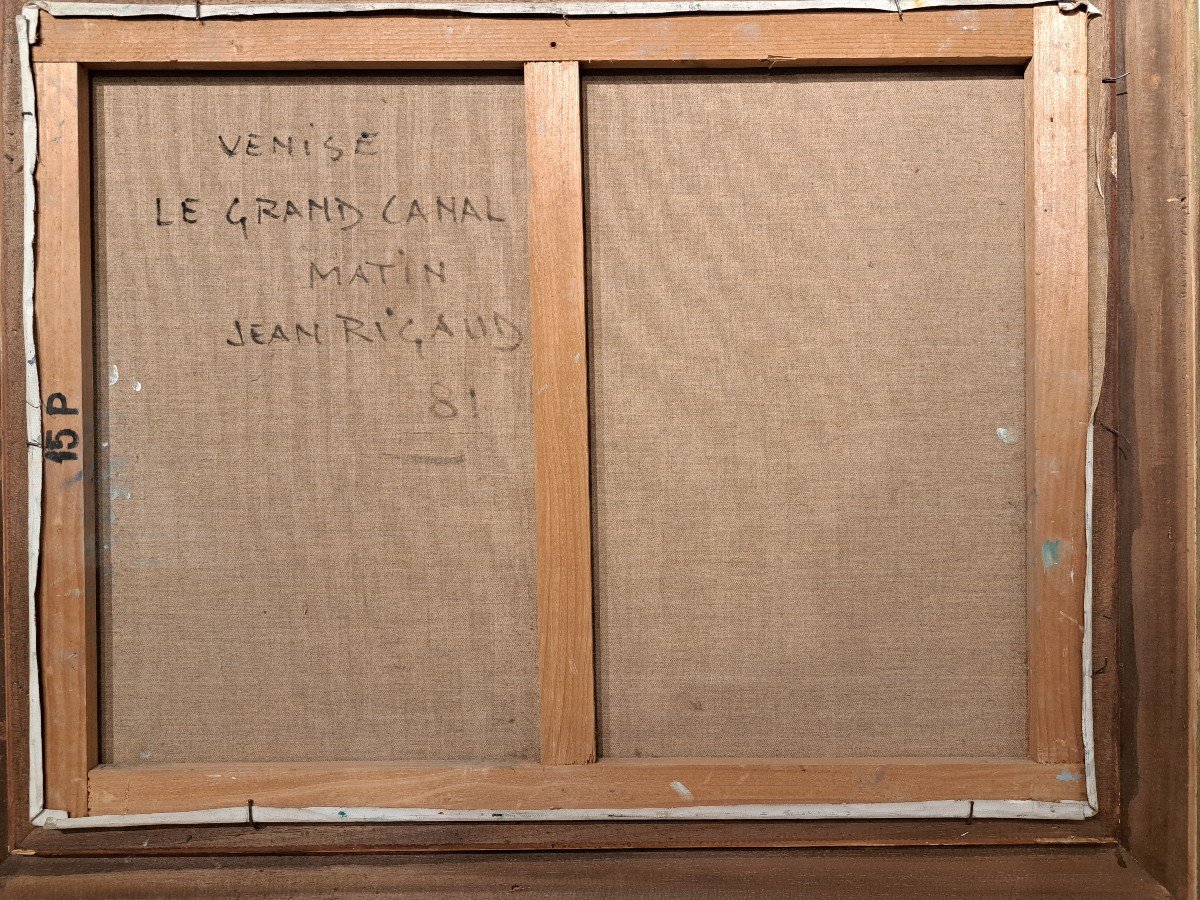 VENiSE
LE GRAND CANAL
MATiN
JEAN RiGAUD
81
15 P